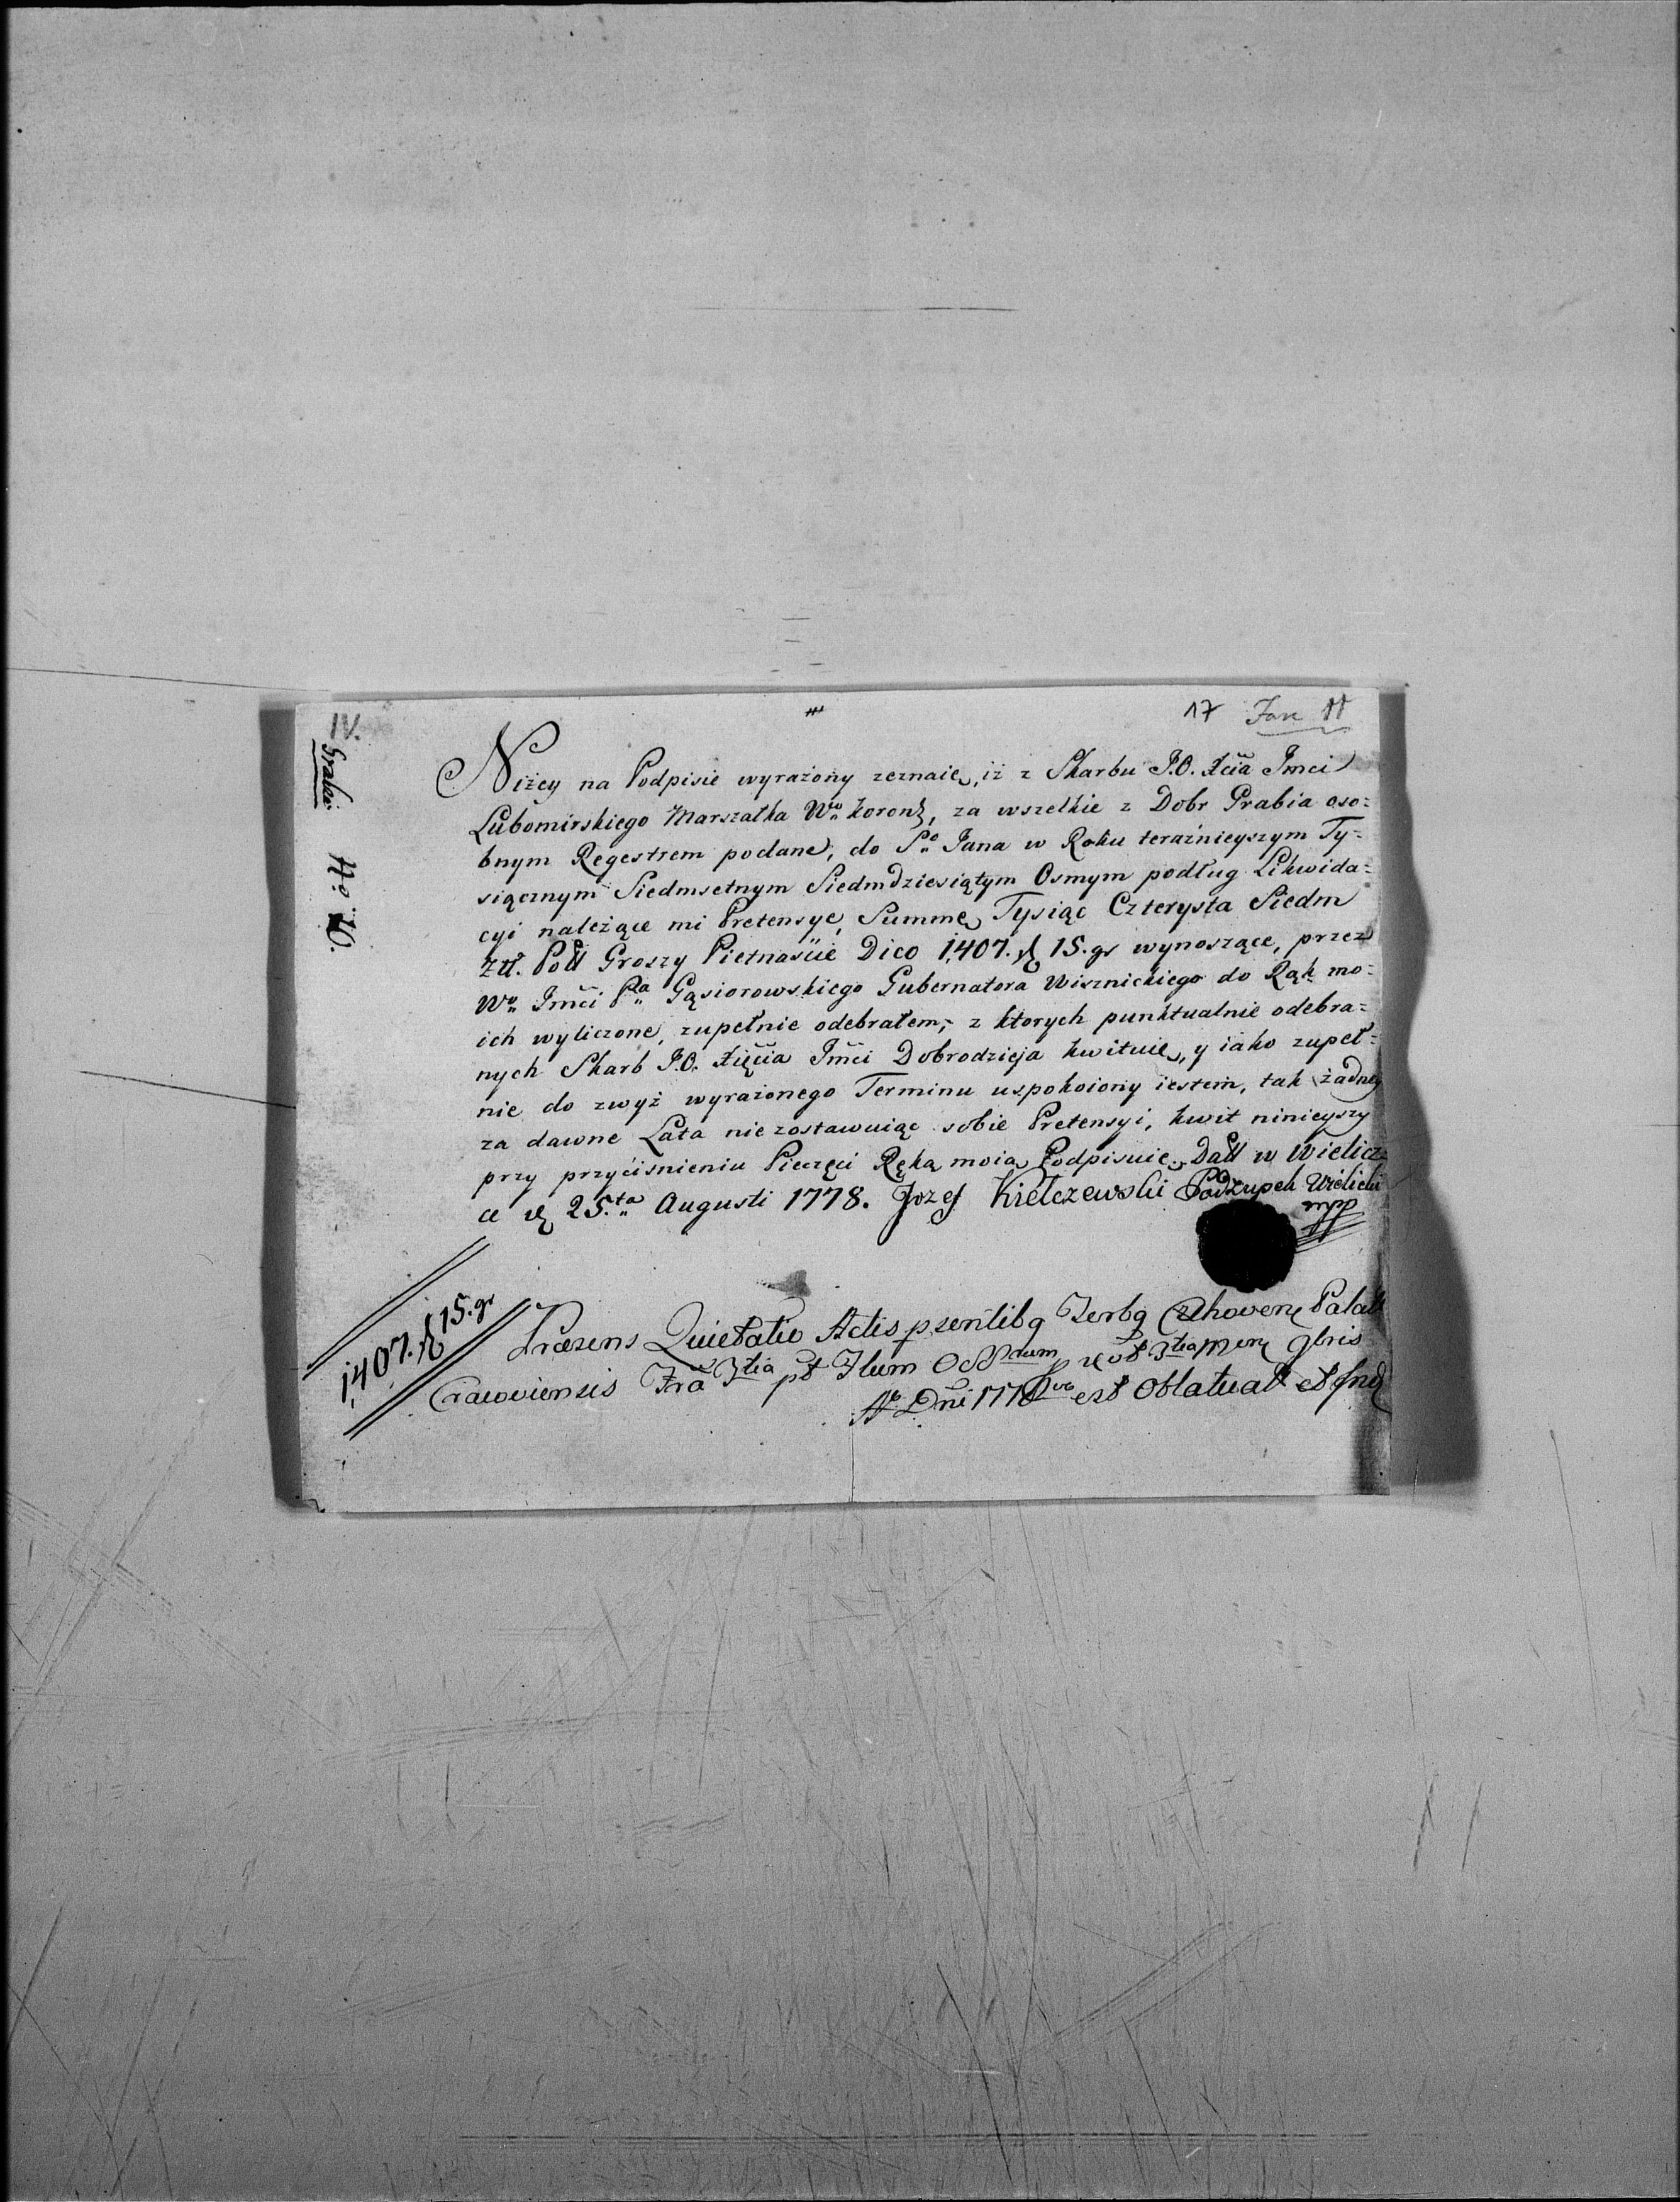 17 Jan 11
IV.
Grabie
No 10.
Niżey na Podpisie wyrażony zeznaię, iż z Skarbu J.O. Xcia Jmci
Lubomirskiego Marszałka Wo Koron, za wszelkie z Dobr Grabia oso=
bnym Regestrem podane, do So Jana w Roku teraźnieyszym Ty=
siącznym Siedmsetnym Siedmdziesiątym Osmym podług Likwida=
cyi należące mi Pretensye, Summę Tysiąc Czterysta Siedm
Zł. Poll Groszy Pietnaście Dico 1,407. f 15. gr wynoszące, przez
Wo Jmci Pa Gąsiorowskiego Gubernatora Wisznickiego do Rąk mo=
ich wyliczone, zupełnie odebrałem, z ktorych punktualnie odebra=
nych Skarb J.O. Xięcia Jmci Dobrodzieja kwituię, y iako zupeł=
nie do zwyż wyrażonego Terminu uspokoiony iestem, tak żadney
za dawne Lata nie zostawuiąc sobie Pretensyi, kwit ninieyszy
przy przyciśnieniu Pieczęci Ręką moią Podpisuię. Datt w Wielicz=
ce d 25.ta Augusti 1778. Jozef Kiełczewski Podżupek Wielicki
mpp
1,407. f 15. gr
Præsens Quietatio Actis psentibq Terbq Czchoven Palatt
Cracoviensis Fra 3tia pt Flum Oct
Ao Dni 1778vo est Oblatuat et